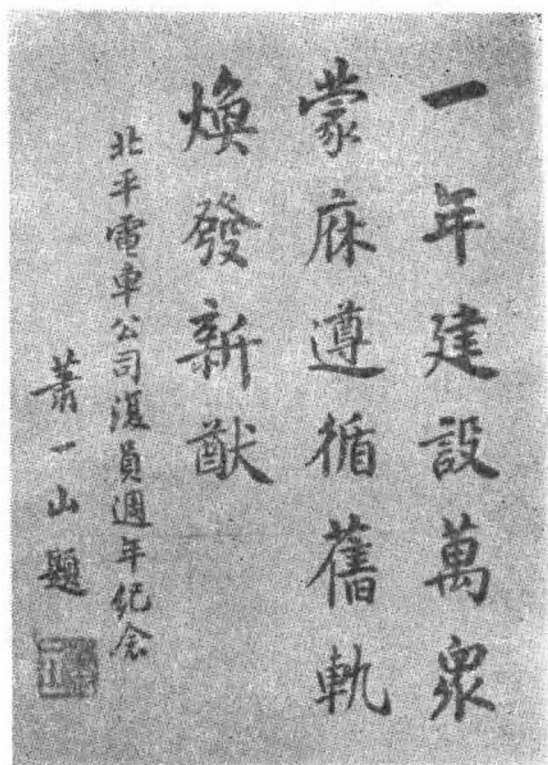 一年建設萬眾
蒙庥遵循舊軌
煥發新猷
北平電車公司復員週年紀念
蕭一山題